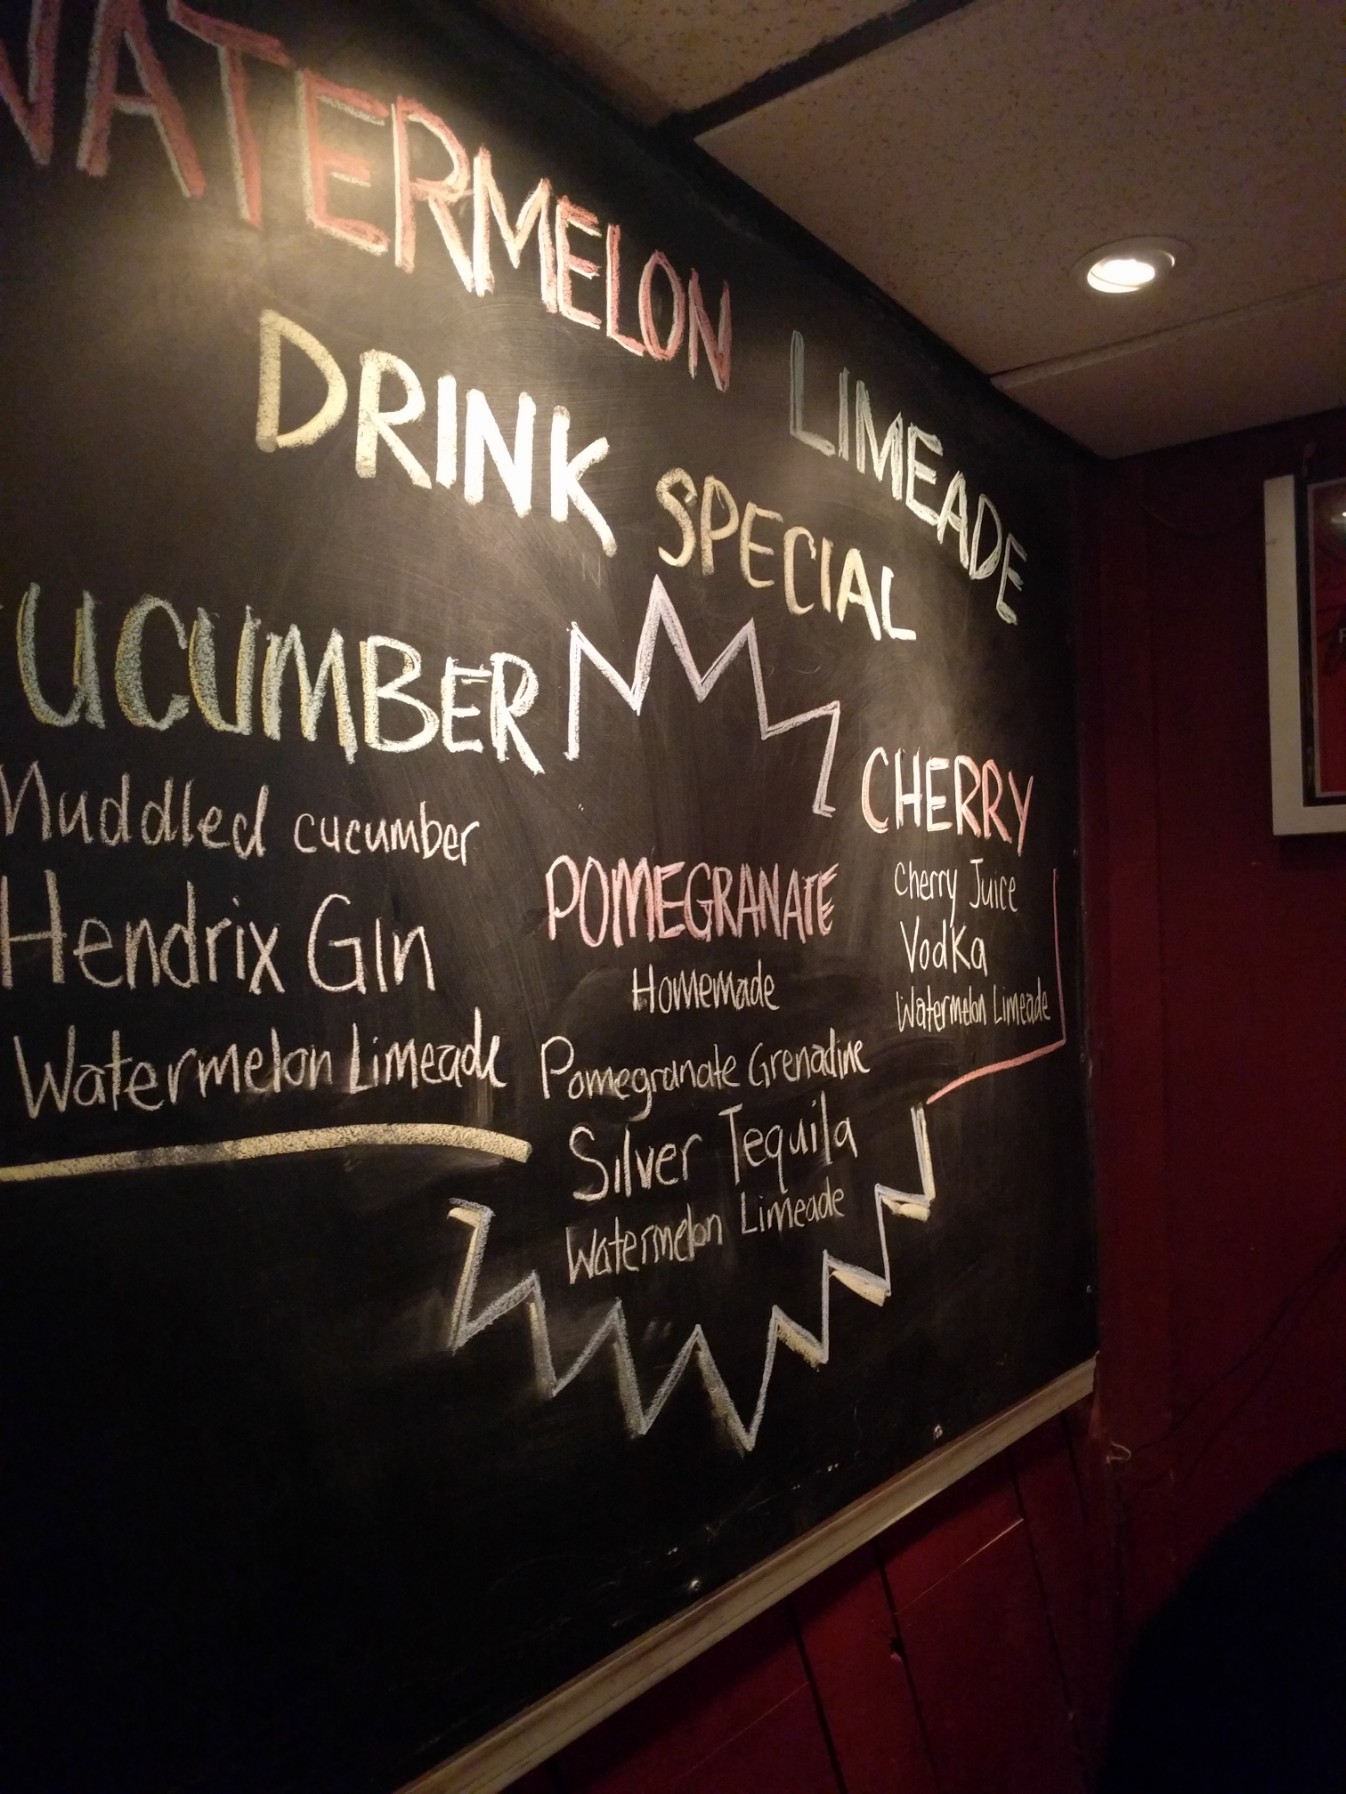 WATERMELON LIMEADE
DRINK SPECIAL
CUCUMBER
Muddled cucumber
Hendrix Gin
Watermelon Limeade
POMEGRANATE
Homemade
Pomegranate Grenadine
Silver Tequila
Watermelon Limeade
CHERRY
Cherry Juice
Vodka
Watermelon Limeade